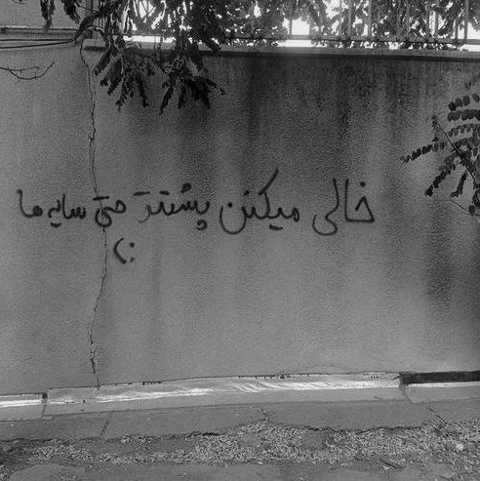 خالی میکنن پشتتو حتی سایه ها
:)